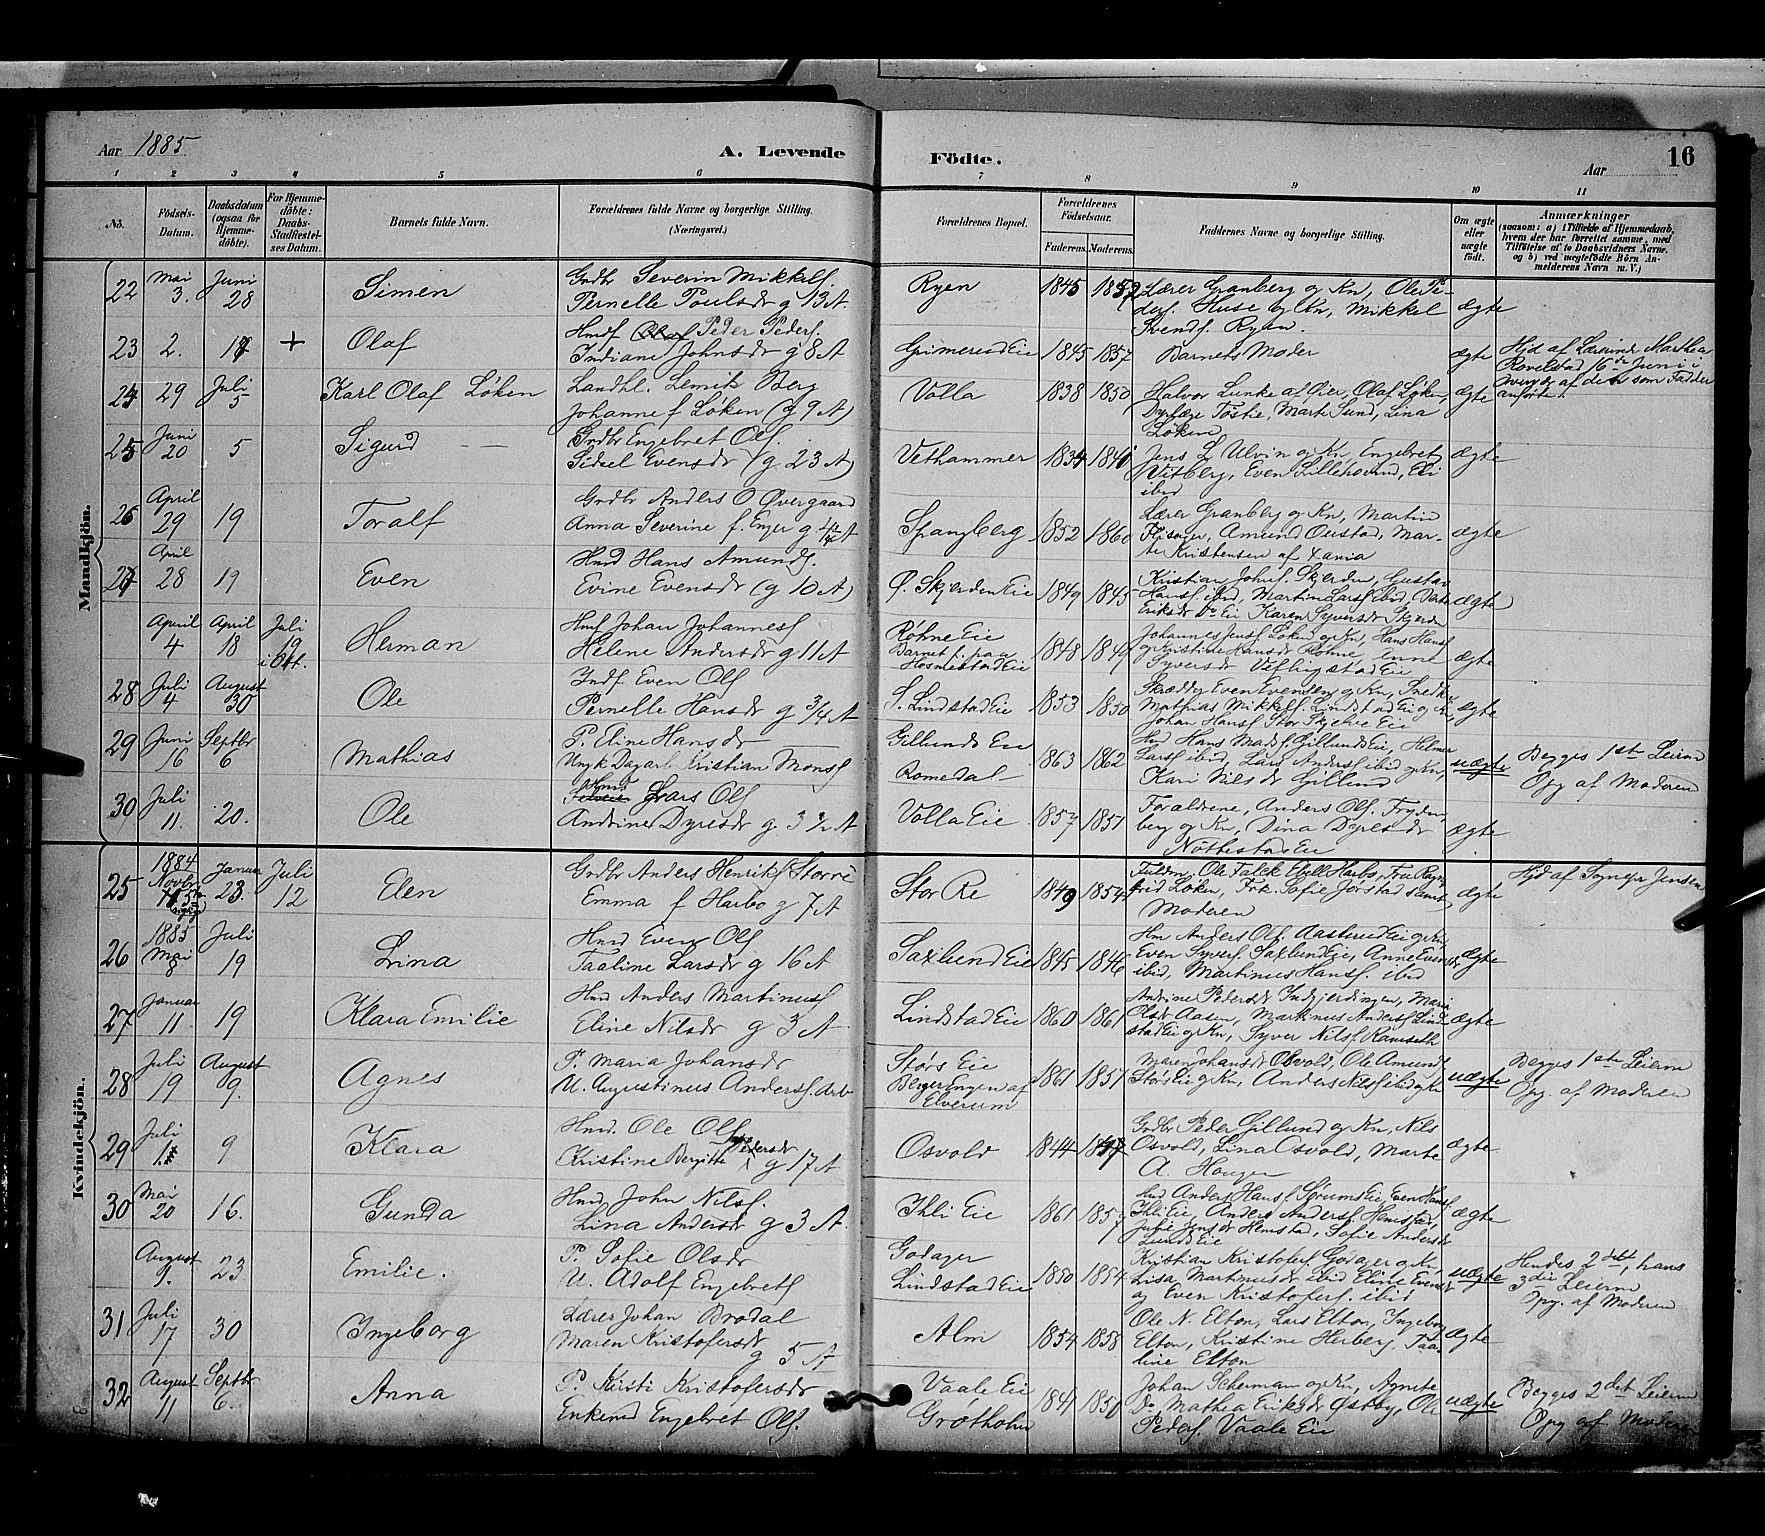 Aar 1885
A. Levende Födte.
Aar
16
1 2 3 4 5 6 7 8 9 10 11
No.
Födsels-Datum.
Daabsdatum (ogsaa for Hjemmedöbte).
For Hjemmedöbte: Daabs-Stadfæstelses Datum.
Barnets fulde Navn.
Forældrenes fulde Navne og borgerlige Stilling.
(Næringsvei.)
Forældrenes Bopæl.
Forældrenes Födselsaar.
Faderens. Moderens.
Faddernes Navne og borgerlige Stilling.
Om ægte eller uægte födt.
Anmærkninger
(saasom: a) i Tilfælde af Hjemmedaab, hvem der har forrettet samme, med Tilföielse af to Daabsvidners Navne, og b) ved uægtefödte Börn Anmelderens Navn m. V.)
Mandkjön.
22 Mai 3. Juni 28 Simen
Grdbr Severin Mikkels.
Pernelle Poulsdr g 13 A
Ryen 1845 1852
Lærer Granberg og Kn, Ole Pe-
ders. Huse og Kn, Mikkel
Svends. Ryen.
ægte
23 2. 17 + Olaf
Hmdf Olaf Peder Peders.
Indiane Johnsdr g 8 A
Grimerud Eie 1845 1857
Barnets Moder
ægte
Hjd af Lærerinde Marthea
Rovelstad 16de Juni i
Overvær af dem som Fadder
anførte.
24 29 Juli 5 Karl Olaf Løken
Landhl. Lemik Berg
Johanne f Løken (g 9 A)
Volla 1838 1850
Halvor Lunke af Øier, Olaf Løken,
Dyrlæge Tøstie, Marte Sund, Lina
Løken
ægte
25 Juni 20 5 Sigurd
Grdbr Engebret Ols.
Sidsel Evensdr (g 23 A)
Vethammer 1834 1840
Jens L Ulvin og Kn, Engebret
Vitberg, Even Lillehovind, Eli
ibid
ægte
26 April 29 19 Toralf
Grdbr Anders O Øvergaard
Anna Severine f. Enger g 4 A
Spangberg 1852 1860
Lærer Granberg og Kn, Martin
Flisager, Amund Oustad, Mar-
te Kristensen af Xania
ægte
27 April 28 19 Even
Hmd Hans Amunds.
Evine Evensdr (g 10 A)
Ø. Skjerden Eie 1849 1845
Kristian Johns. Skjerden, Gustav
Hans. ibid, Martin Lars. ibid, Berte
Eriksdr Do Eie Karen Syversdr Skjerden
ægte
April 4 April 18 Juli 19 i Ott. Herman
Hmf Johan Johannes.
Helene Andersdr g 11 A
Røhne Eie
Barnet f. paa
Hosmestad Eie
1848 1847
Johannes Jens. Løken og Kn, Hans Hans.
og Kristine Hansdr Røhne
Syversdr Veflingstad Eie
ægte
28 Juli 4 August 30 Ole
Indf Even Ols
Pernelle Hansdr g 3/4 A
S. Lindstad Eie 1853 1850
Skrædder Even Evensen og Kn, Snedker
Mathias Mikkels. Lindstad Eie og Kn,
Johan Hans. Stor Skjelve Eie
ægte
29 Juni 16 Septbr 6 Mathias
P. Eline Hansdr
Ungk Dagarb Kristian Mons.
Gillunds Eie
Romedal
1863 1862
Hmd Hans Mads. Gillunds Eie, Helmer
Lars. ibid, Lars Anders. ibid og Kn,
Kari Nilsdr Gillund
uægte
Begges 1ste Leierm
Opg af Moderen
30 Juli 11. 20. Ole
Hmd Lars Ols
Andrine Dyresdr g 3 1/2 A
Volla Eie 1857 1851
Forældrene, Anders Ols. Fryden-
berg og Kn, Dina Dyresdr
Nøttestad Eie
ægte
Kvindekjön.
25 1884 Novbr Januar 23. Juli 12 Elen
Grdbr Anders Henriks. Storre
Emma f Harbo g 7 A
Stor Re 1849 1854
Fuldm. Ole Falck Ebbell Harbo, Fru Ragn-
frid Løken, Frk. Sofie Jorstad samt
Moderen
ægte
Hjd af Sognepr Jensen
26 1885 Mai 8 Juli 19 Lina
Hmd Even Ols
Taaline Larsdr g 16 A
Saxlund Eie 1845 1846
Hm Anders Ols. Aasterud Eie og Kn,
Even Syvers. Saxlund Eie, Anne Evensdr
ibid, Martinus Hans. ibid
ægte
27 Januar 11 19 Klara Emilie
Hmd Anders Martinus.
Eline Nilsdr g 3 A
Lindstad Eie 1860 1861
Andine Pedersdr Indkjerdingen, Maria
Olsdr Aasen, Martinus Anders. Lind
stad Eie og Kn, Syver Nils. Ramseth
ægte
28 Juli 19 August 9. Agnes
P. Maria Johansdr
U. Augustinus Anders. Arb
Størs Eie
Berger Engen af
Elverum
1861 1857
Maren Johansdr Osvold, Ole Amunds.
Størs Eie og Kn, Anders Nils. ibid og Kn
uægte
Begges 1ste Leierm
Opg. af Moderen
29 Juli 1. 9 Klara
Hmd. Ole Ols.
Kristine Bergitte Pedersdr g 17 A
Osvold 1844 1847
Grdbr Peder Gillund og Kn, Nils
Osvold, Lina Osvold, Marte
A. Haugen
ægte
30 Mai 20 16. Gunda
Hmd John Nils.
Lina Andersdr g 3 A.
Ihli Eie 1861 1857
Hmd Anders Hans. Sørums Eie, Even Hans.
Ihli Eie, Anders Anders. Hemstad,
Julie Jensdr Hemstad, Sofie Andersdr
Lunds Eie
ægte
August 9. 23 Emilie.
P. Sofie Olsdr
U. Adolf Engebrets
Godager
Lindstad Eie
1850 1854
Kristian Kristofers. Godager og Kn,
Lisa Martinusdr ibid Eline Evensdr
og Even Kristofers. ibid
uægte
Hendes 2det, hans
3die Leierm
Opg. af Moderen
31 Juli 17 30 Ingeborg
Lærer Johan Brodal
Maren Kristofersdr
g 5 A
Alm 1854 1858
Ole N. Elton, Lars Elton, Ingeborg
Elton, Kristine Herberg, Taa-
line Elton
ægte
32 August 11 Septbr 6. Anna
P. Kirsti Kristofersdr
Enkemd Engebret Ols.
Vaale Eie
Grøtholm
1841 1850
Johan Scherman og Kn, Agnete
Do Mathea Eriksdr Østby, Ole
Peders. Vaale Eie
uægte
Begges 2det Leierm
Opg af Moderen